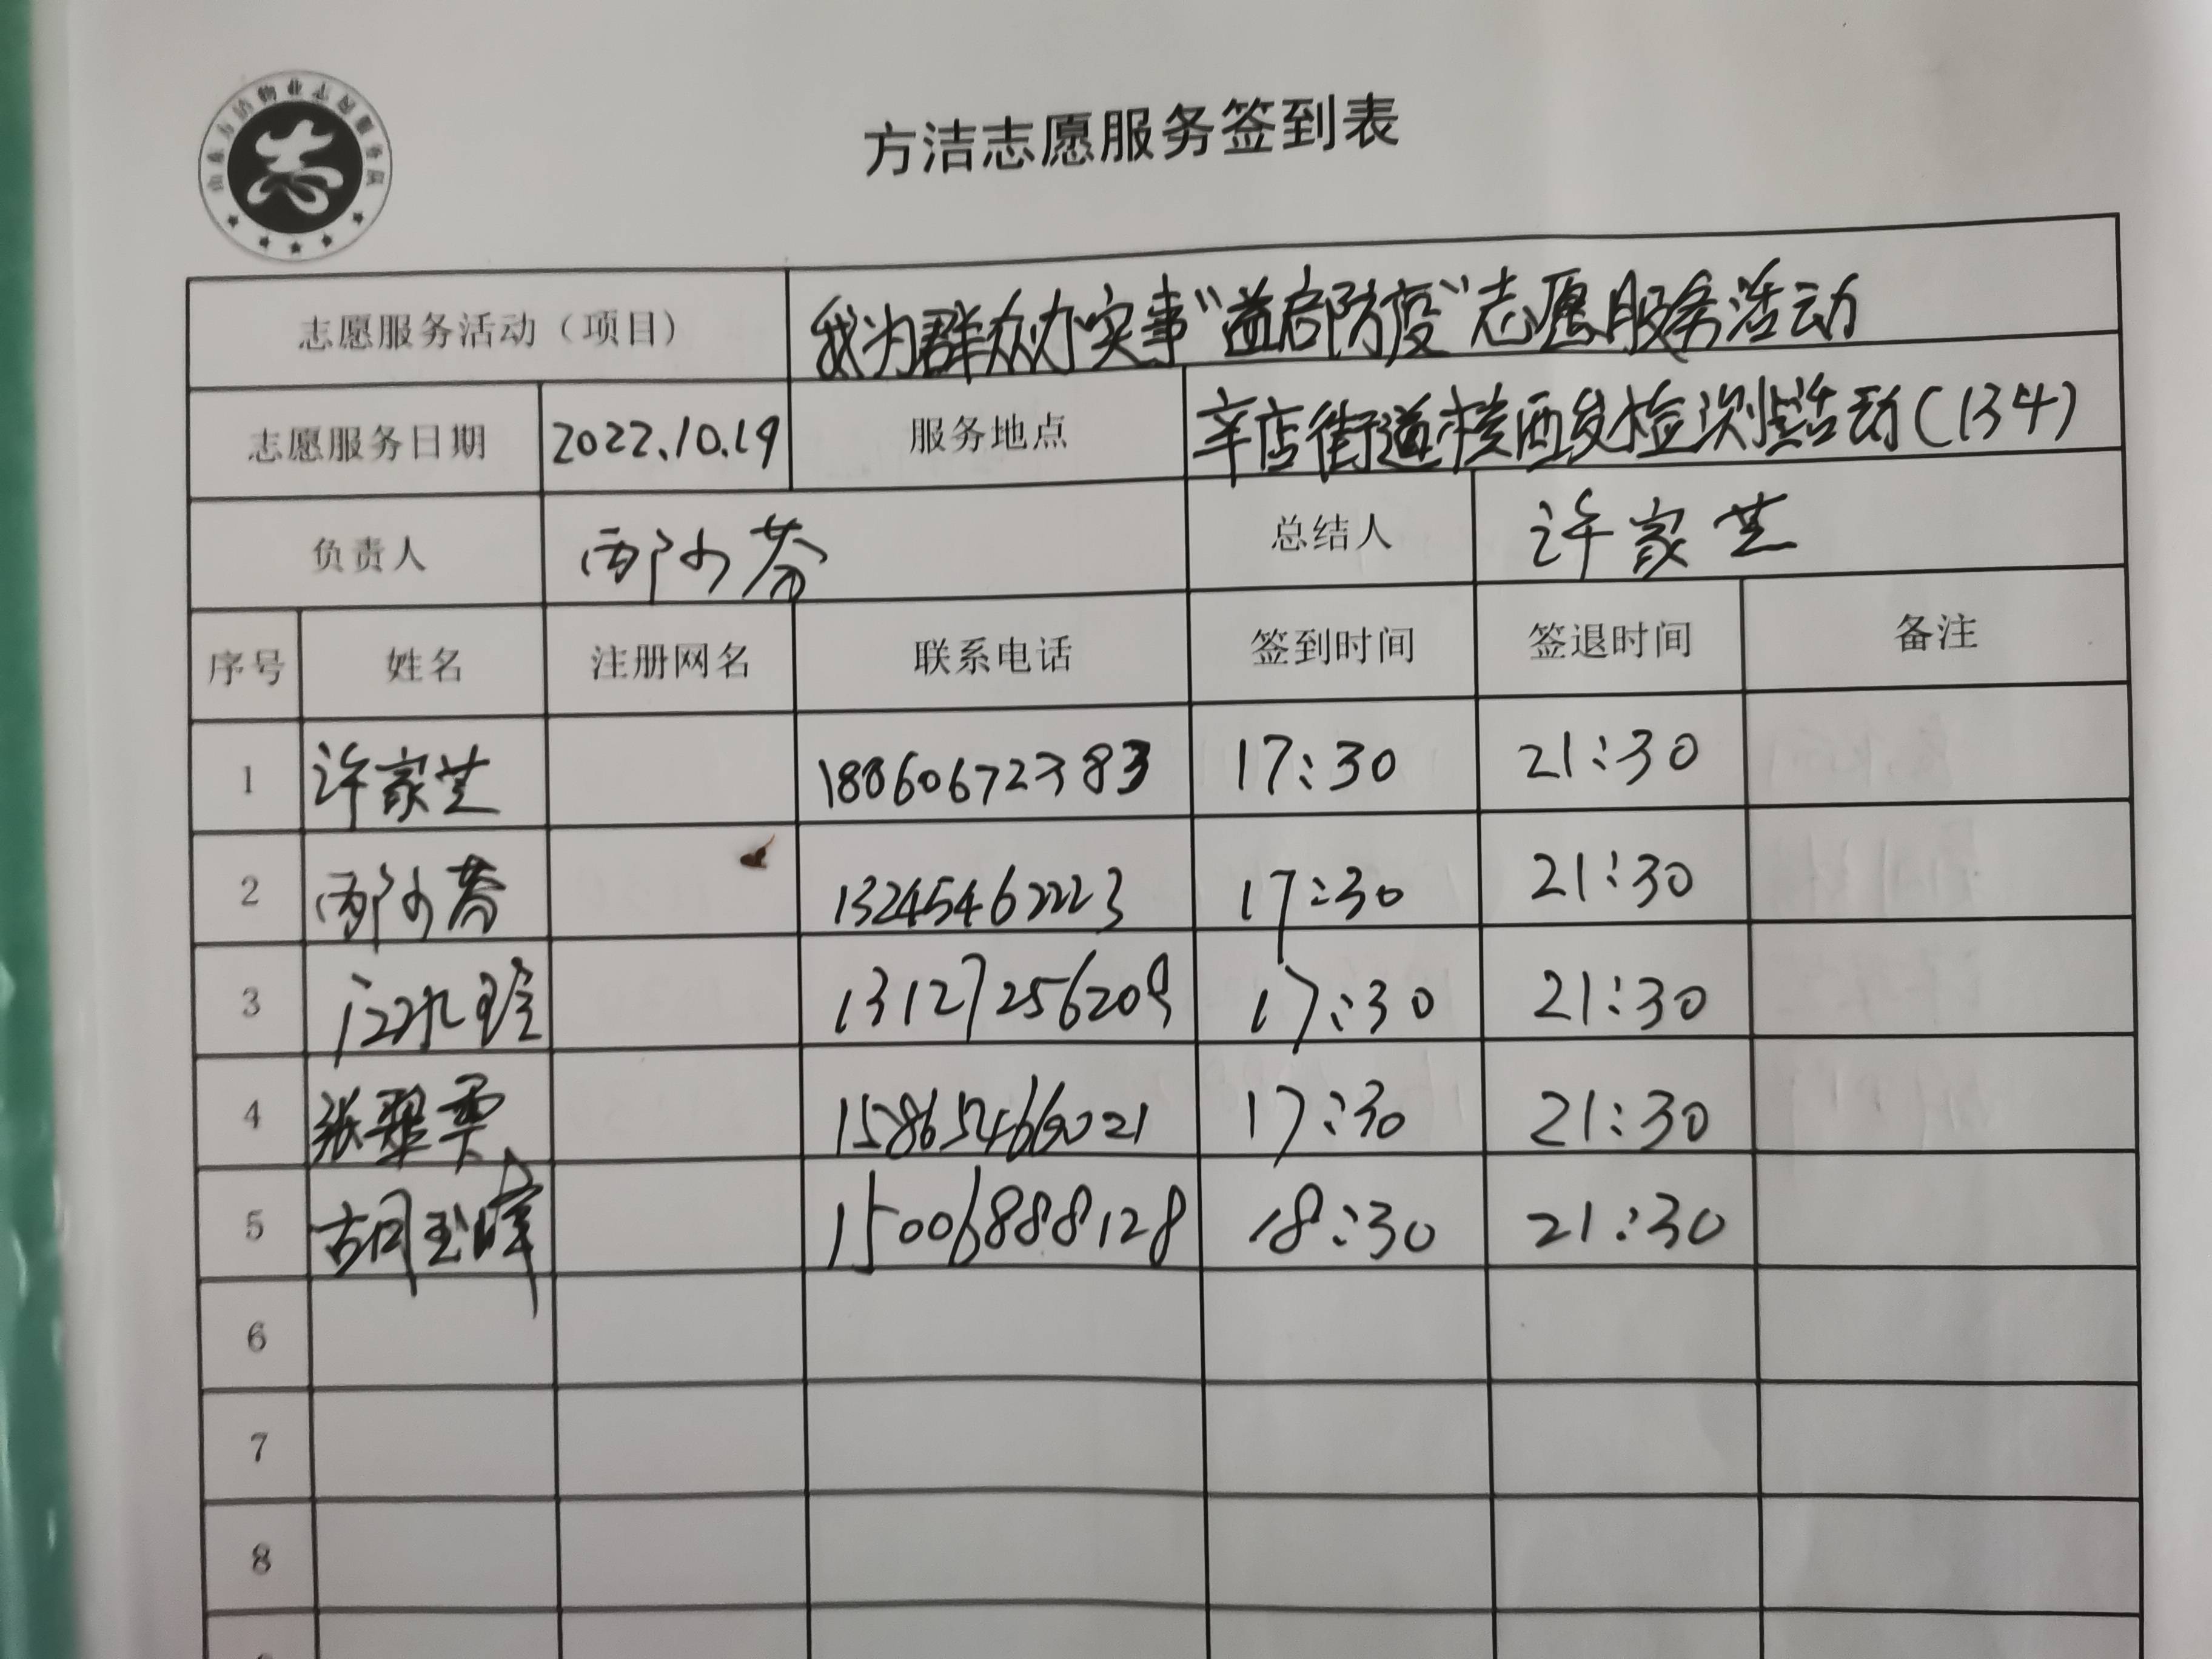 山东方洁物业志愿服务队
志
方洁志愿服务签到表
志愿服务活动（项目） 我为群众办实事“益启防疫”志愿服务活动
志愿服务日期 2022.10.19 服务地点 辛店街道核酸检测点活动(134)
负责人 邴小芬 总结人 许家芝
序号 姓名 注册网名 联系电话 签到时间 签退时间 备注
1 许家芝 188060672383 17:30 21:30
2 邴小芬 13245462223 17:30 21:30
3 13127256209 17:30 21:30
4 张翠 15865466021 17:30 21:30
5 15006888128 18:30 21:30
6
7
8